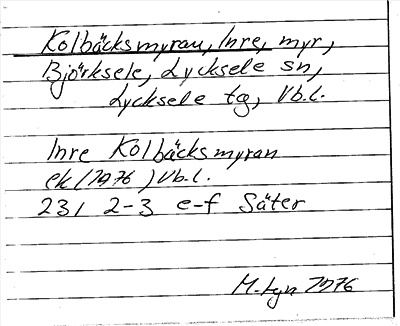 Kolbäcksmyran, Inre, myr,
Björksele, Lycksele sn,
Lycksele tg, Vb.l.
Inre Kolbäcksmyran
ek (1976) Vb.l.
231 2-3 e-f Säter
1976